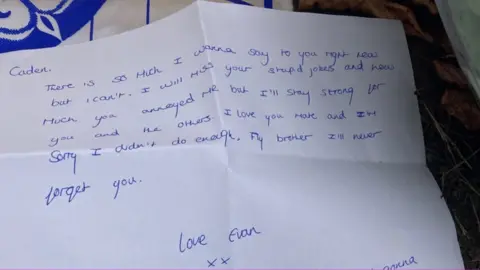 Caden.
There is so Much I wanna say to you right now
but i can't. I will Miss your stupid jokes and how
Much you annoyed Me but I'll stay strong for
you and the others. I love you Mate and I'M
Sorry I didn't do enough. Fly brother I'll never
forget you.
love Evan
xx